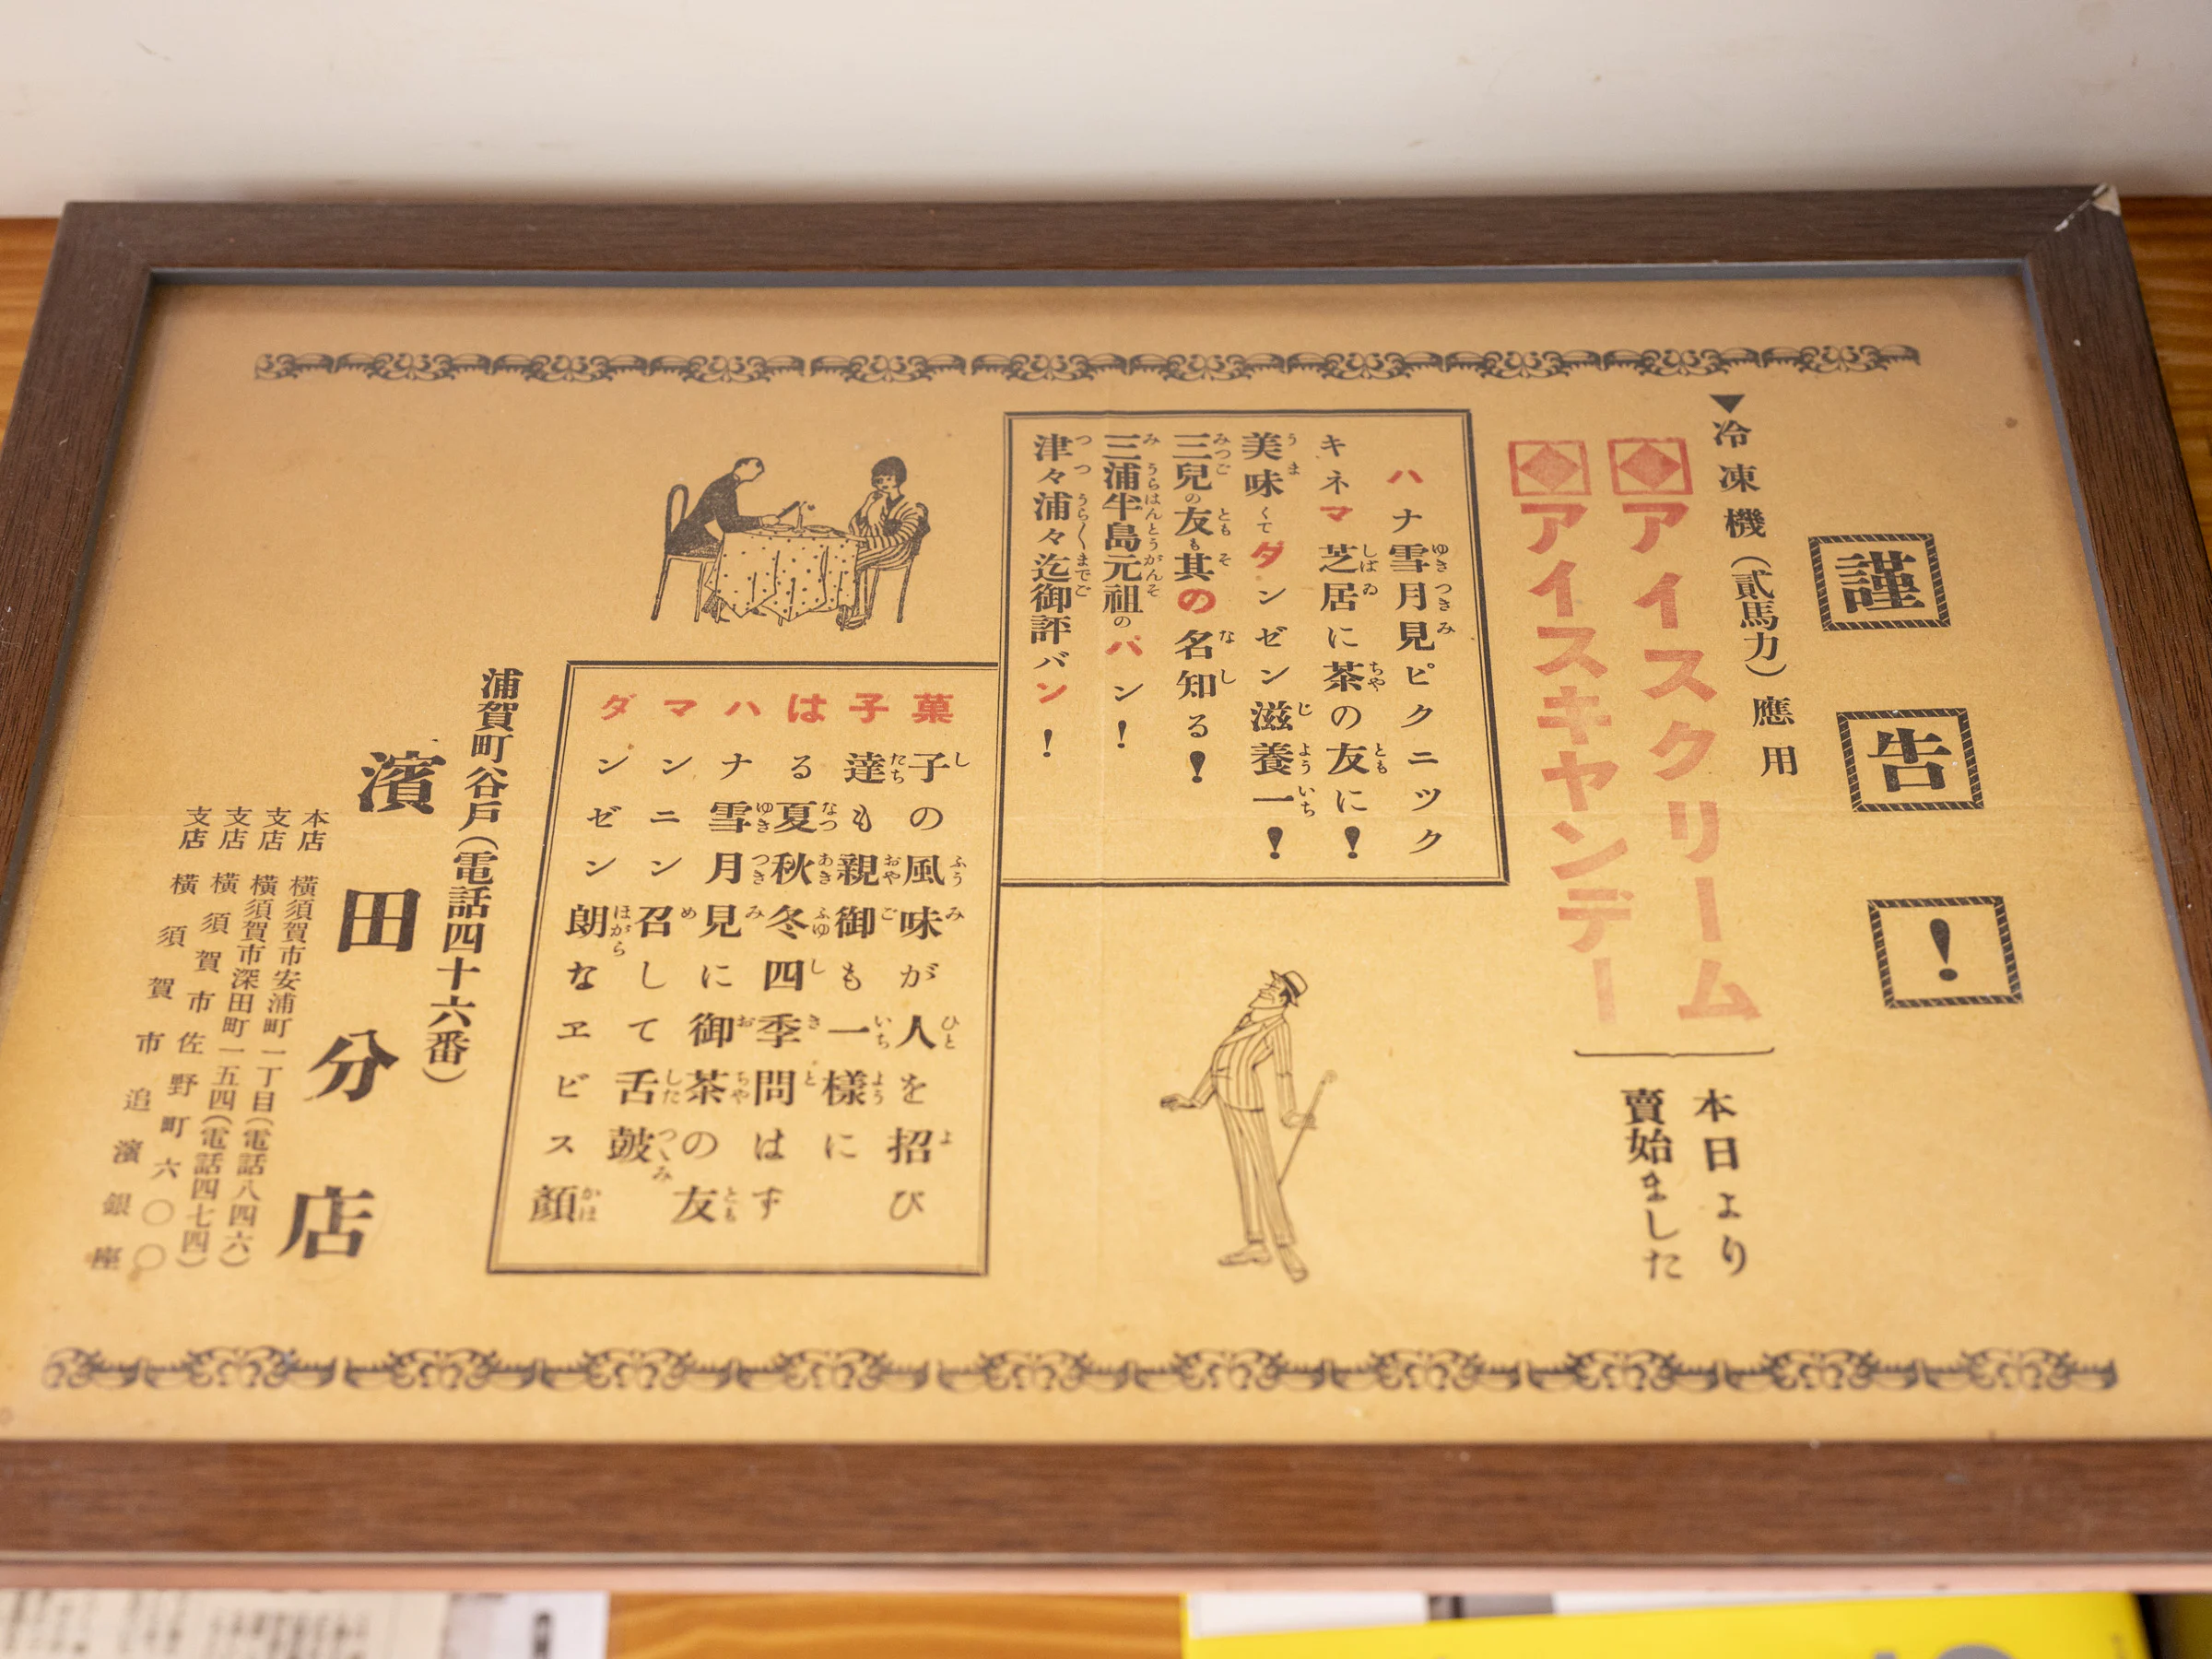 謹告!
▼冷凍機(貳馬力)應用
アイスクリーム
アイスキャンデー
本日より
賣始ました
ハナ雪月見ピクニツク
キネマ芝居に茶の友に!
美味くてダンゼン滋養一!
三兒の友も其の名知る!
三浦半島元祖のパン!
津々浦々迄御評バン!
菓子の風味が人を招び
子達も親御も一樣に
はる夏秋冬四季問はず
ハナ雪月見に御茶の友
マンニン召して舌鼓
ダンゼン朗なヱビス顔
浦賀町谷戸(電話四十六番)
濱田分店
本店 橫須賀市安浦町一丁目(電話八四六)
支店 橫須賀市深田町一五四(電話四七四)
支店 橫須賀市佐野町六〇〇
支店 橫須賀市追濱銀座